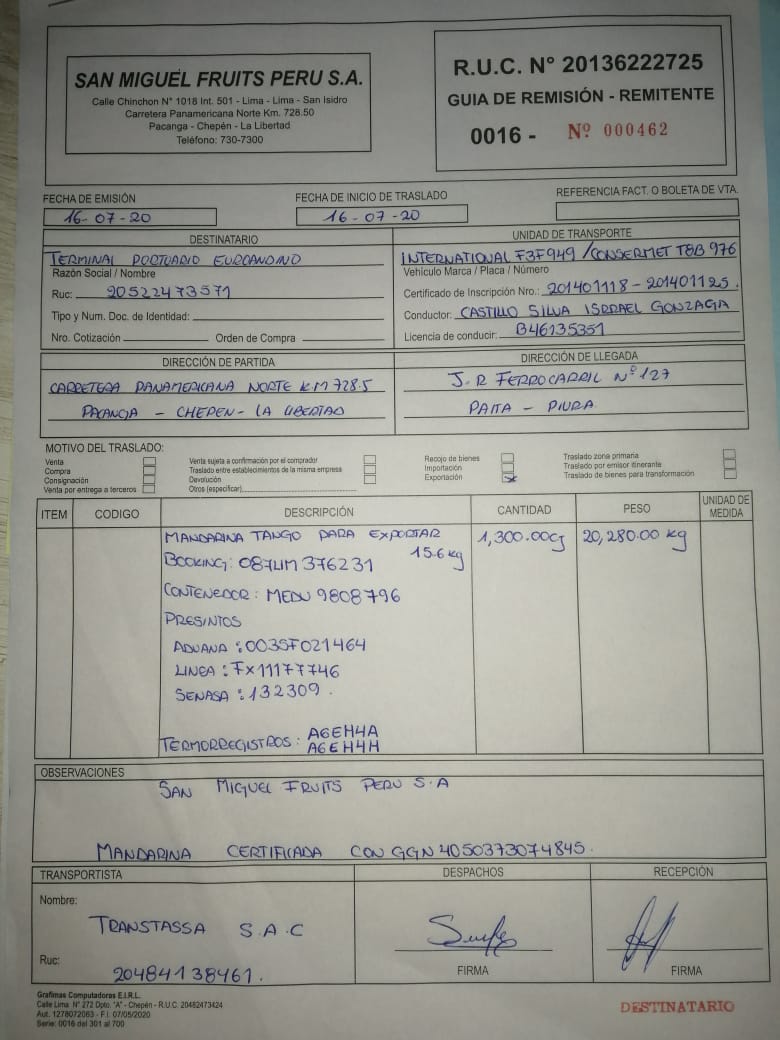 SAN MIGUEL FRUITS PERU S.A.
Calle Chinchon N° 1018 Int. 501 - Lima - Lima - San Isidro
Carretera Panamericana Norte Km. 728.50
Pacanga - Chepén - La Libertad
Teléfono: 730-7300
R.U.C. N° 20136222725
GUIA DE REMISIÓN - REMITENTE
0016 - Nº 000462
FECHA DE EMISIÓN
16-07-20
FECHA DE INICIO DE TRASLADO
16-07-20
REFERENCIA FACT. O BOLETA DE VTA.
DESTINATARIO
TERMINAL PORTUARIO EUROANDINO
Razón Social / Nombre
Ruc: 20522473571
Tipo y Num. Doc. de Identidad:
Nro. Cotización Orden de Compra
UNIDAD DE TRANSPORTE
INTERNATIONAL F3F949 / CONSERMET T8B976
Vehículo Marca / Placa / Número
Certificado de Inscripción Nro.: 201401118 - 201401125.
Conductor: CASTILLO SILVA ISRRAEL GONZAGA
Licencia de conducir: B46135351
DIRECCIÓN DE PARTIDA
CARRETERA PANAMERICANA NORTE KM 728.5
PACANGA - CHEPEN - LA LIBERTAD
DIRECCIÓN DE LLEGADA
J.R FERROCARRIL Nº 127
PAITA - PIURA
MOTIVO DEL TRASLADO:
Venta
Compra
Consignación
Venta por entrega a terceros
Venta sujeta a confirmación por el comprador
Traslado entre establecimientos de la misma empresa
Devolución
Otros (especificar)
Recojo de bienes
Importación
Exportación X
Traslado zona primaria
Traslado por emisor itinerante
Traslado de bienes para transformación
ITEM CODIGO DESCRIPCIÓN CANTIDAD PESO UNIDAD DE MEDIDA
MANDARINA TANGO PARA EXPORTAR 1,300.00cj 20,280.00 kg
15.6 kg
BOOKING: 087LIM376231
CONTENEDOR: MEDU 9808796
PRESINTOS
ADUANA: 003SF021464
LINEA: FX11177746
SENASA: 132309.
TERMORREGISTROS: A6EH4A
A6EH4H
OBSERVACIONES
SAN MIGUEL FRUITS PERU S.A
MANDARINA CERTIFICADA CON GGN 4050373074845.
TRANSPORTISTA
Nombre:
TRANSTASSA S.A.C
Ruc:
20484138461.
DESPACHOS
FIRMA
RECEPCIÓN
FIRMA
Grafimas Computadoras E.I.R.L.
Calle Lima N° 272 Dpto. "A" - Chepén - R.U.C. 20482473424
Aut. 1278072063 - F.I. 07/05/2020
Serie: 0016 del 301 al 700
DESTINATARIO